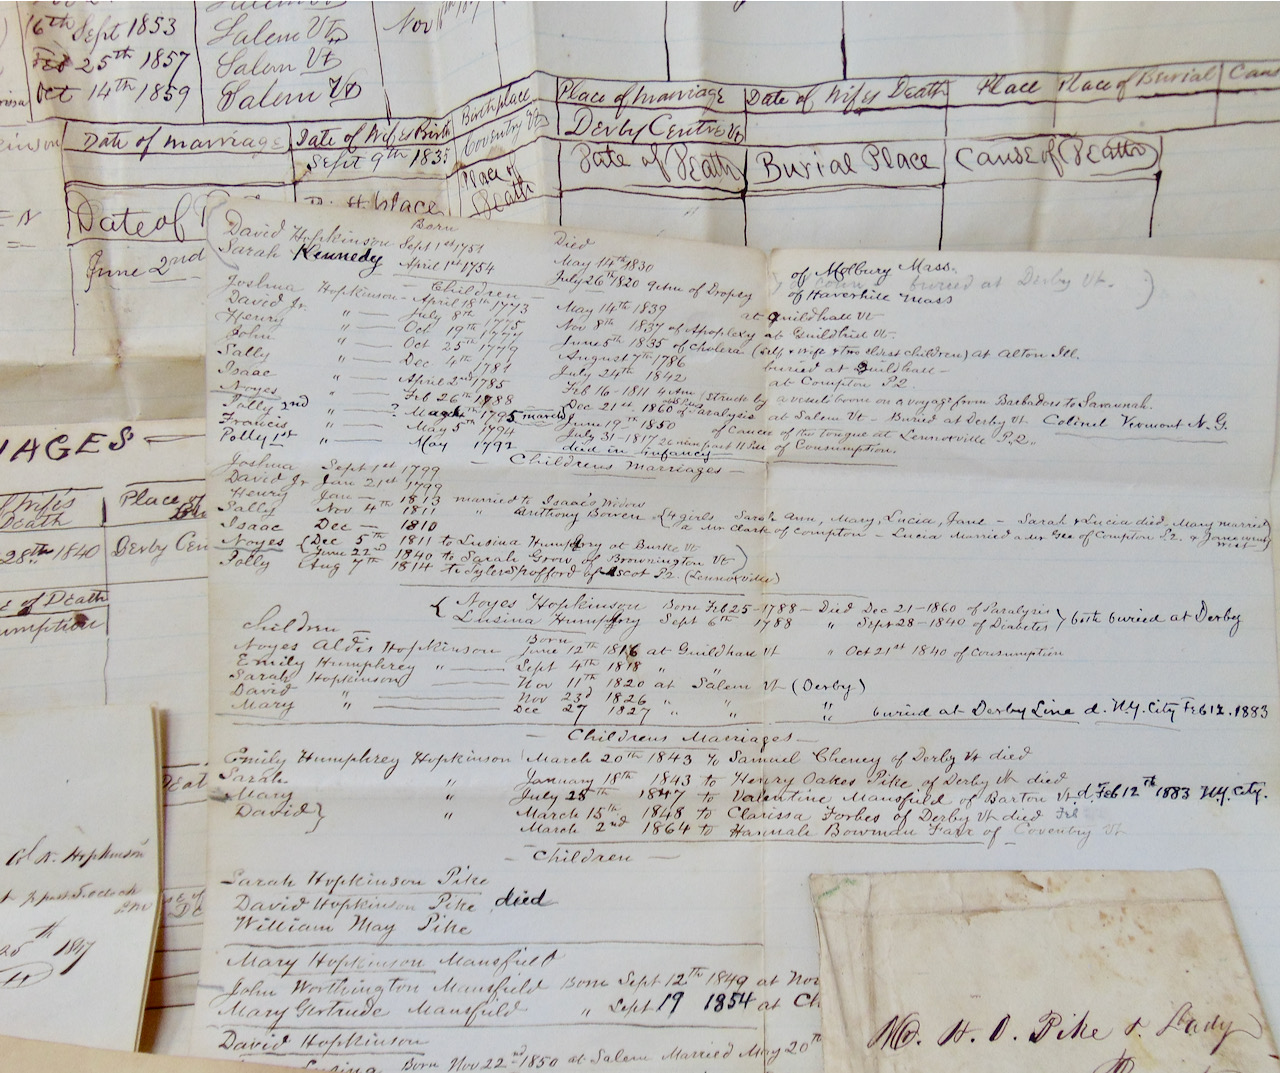 16th Sept 1853 Salem Vt Nov
Feb 25th 1857 Salem Vt
Oct 14th 1859 Salem Vt
Date of marriage Date of Wife's Birth Birthplace Place of marriage Date of Wife's Death Place Place of Burial Caus
Sept 9th 1835 Coventry Vt Derby Centre Vt
Date of Birthplace Place of Death Date of Death Burial Place Cause of Death
June 2nd
IAGES
Wife's Death Place of
28th 1840 Derby Cen
e of Death
umption
Born Died
David Hopkinson Sept 1st 1751 May 14th 1830 of Molbury Mass.
Sarah Kennedy April 1st 1754 July 26th 1820 of Dropsy buried at Derby Vt.
of Haverhill Mass
Children
Joshua Hopkinson April 18th 1773 May 14th 1839 at Guildhall Vt
David Jr. " July 8th 1775 Nov 8th 1837 of Apoplexy at Guildhall Vt.
Henry " Oct 19th 1777 June 5th 1835 of cholera (self & wife & two oldest children) at Alton Ill.
John " Oct 25th 1779 August 7th 1786 buried at Guildhall
Sally " Dec 4th 1781 July 24th 1842 at Compton P.2.
Isaac " April 2nd 1785 Feb 16-1811 4 Am (struck by a vessels boom on a voyage from Barbadoes to Savannah.
Noyes " Feb 26th 1788 Dec 21st 1860 of Paralysis at Salem Vt - Buried at Derby Vt Colonel Vermont N.G.
Polly 2nd " ? March 1795 march June 19th 1850 of Cancer of the tongue at Lennoxville P.2.
Francis " May 5th 1794 July 31-1817 of Consumption.
Polly 1st " May 1792 died in infancy
Childrens Marriages
Joshua Sept 1st 1799
David Jr Jan 21st 1799
Henry Jan 1813 married to Isaac's Widow
Sally Nov 4th 1811 " Anthony Bowen (4 girls Sarah Ann, Mary, Lucia, Jane - Sarah & Lucia died. Mary married
Isaac Dec 1810 a Mr Clark of Compton - Lucia Married a Mr Gee of Compton P.2. & Jane went west
Noyes (Dec 5th 1811 to Lusina Humphry at Burke Vt
(June 22nd 1840 to Sarah Grow of Brownington Vt)
Polly Aug 7th 1814 to Tyler Spofford of Ascot P.2. (Lennoxville)
{ Noyes Hopkinson Born Feb 25-1788 - Died Dec 21-1860 of Paralysis
Lusina Humphry Sept 6th 1788 " Sept 28-1840 of Diabetes } both buried at Derby
Children
Born
Noyes Aldis Hopkinson June 12th 1816 at Guildhall Vt " Oct 21st 1840 of Consumption
Emily Humphrey " Sept 4th 1818 " "
Sarah Hopkinson Nov 11th 1820 at Salem Vt (Derby)
David " Nov 23d 1826 " "
Mary " Dec 27 1827 " " " buried at Derby Line d. N.Y. City Feb 12. 1883
Childrens Marriages
Emily Humphrey Hopkinson March 20th 1843 to Samuel Cheney of Derby Vt died
Sarah " January 18th 1843 to Henry Oakes Pike of Derby Vt died
Mary " July 28th 1847 to Valentine Mansfield of Barton Vt. d. Feb 12th 1883 N.Y. City.
David } " March 15th 1848 to Clarissa Forbes of Derby Vt died Feb
March 2nd 1864 to Hannah Bowman Farr of Coventry Vt
Children
Sarah Hopkinson Pike
David Hopkinson Pike died
William May Pike
Mary Hopkinson Mansfield
John Worthington Mansfield Born Sept 12th 1849 at Nor
Mary Gertrude Mansfield " Sept 19 1854 at Ch
David Hopkinson
Born Nov 22nd 1850 at Salem Married May 20th
Col N. Hopkinson
25th 1847
Mr. H. O. Pike & Lady